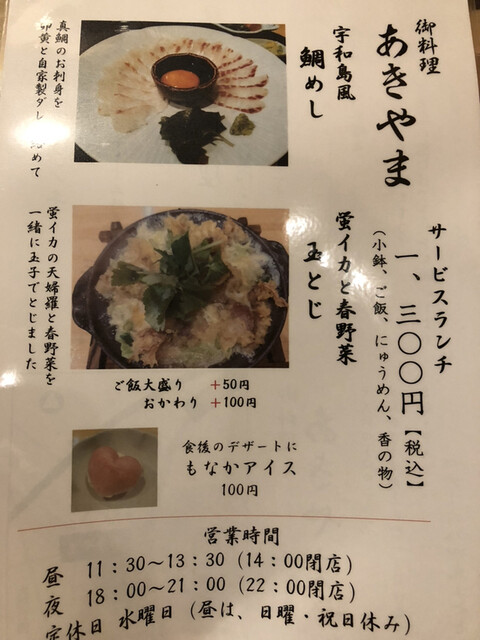 御料理
あきやま
サービスランチ
一、三〇〇円【税込】
（小鉢、ご飯、にゅうめん、香の物）
宇和島風
鯛めし
真鯛のお刺身を
卵黄と自家製ダシ
めて
蛍イカと春野菜
玉とじ
蛍イカの天婦羅と春野菜を
一緒に玉子でとじました
ご飯大盛り +50円
おかわり +100円
食後のデザートに
もなかアイス
100円
営業時間
昼 11：30～13：30（14：00閉店）
夜 18：00～21：00（22：00閉店）
定休日 水曜日（昼は、日曜・祝日休み）